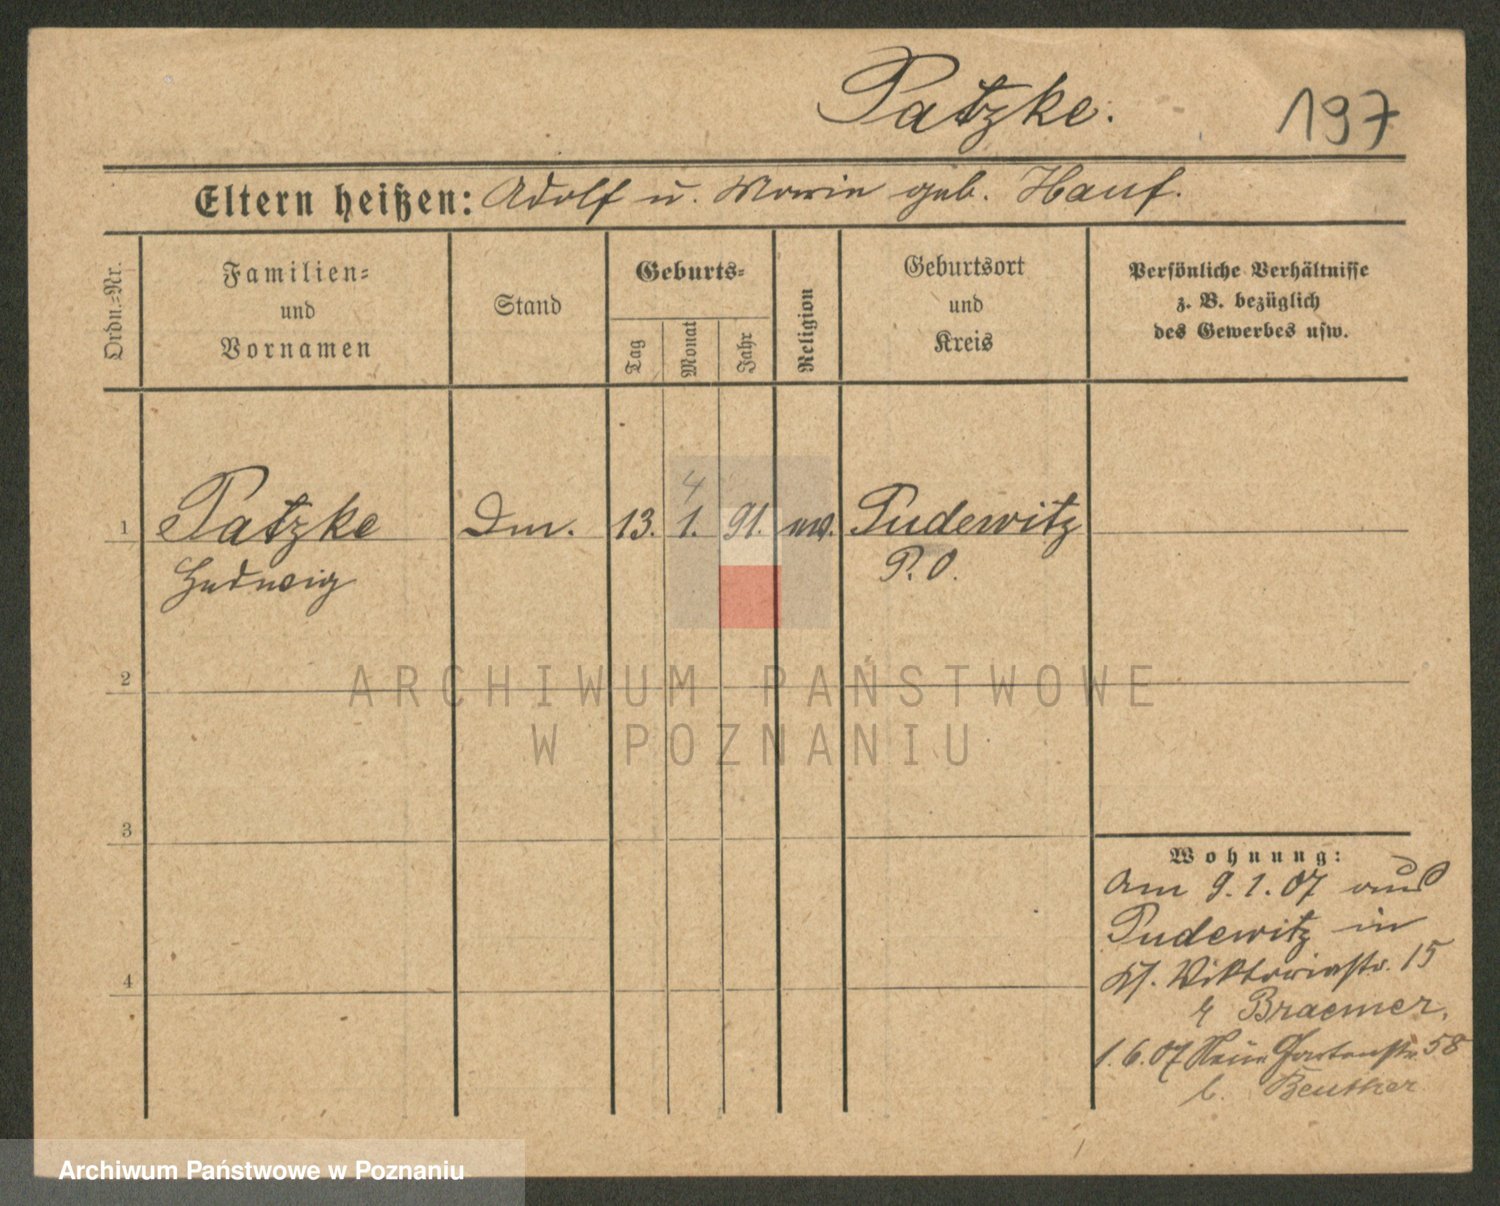 Patzke.
197
Eltern heißen: Adolf u. Marie geb. Hauf.
Ordn.-Nr.
Familien-
und
Vornamen
Stand
Geburts-
Tag
Monat
Jahr
Religion
Geburtsort
und
Kreis
Persönliche Verhältnisse
z. B. bezüglich
des Gewerbes usw.
4
1 Patzke Dm. 13. 1. 91. ev. Pudewitz
Hedwig P. O.
2
ARCHIWUM PAŃSTWOWE
W POZNANIU
3
4
Wohnung:
Am 9.1.07 aus
Pudewitz in
Viktoriastr. 15
Braemer.
1.6.07 Neue Gartenstr. 58
b. Beuther
Archiwum Państwowe w Poznaniu